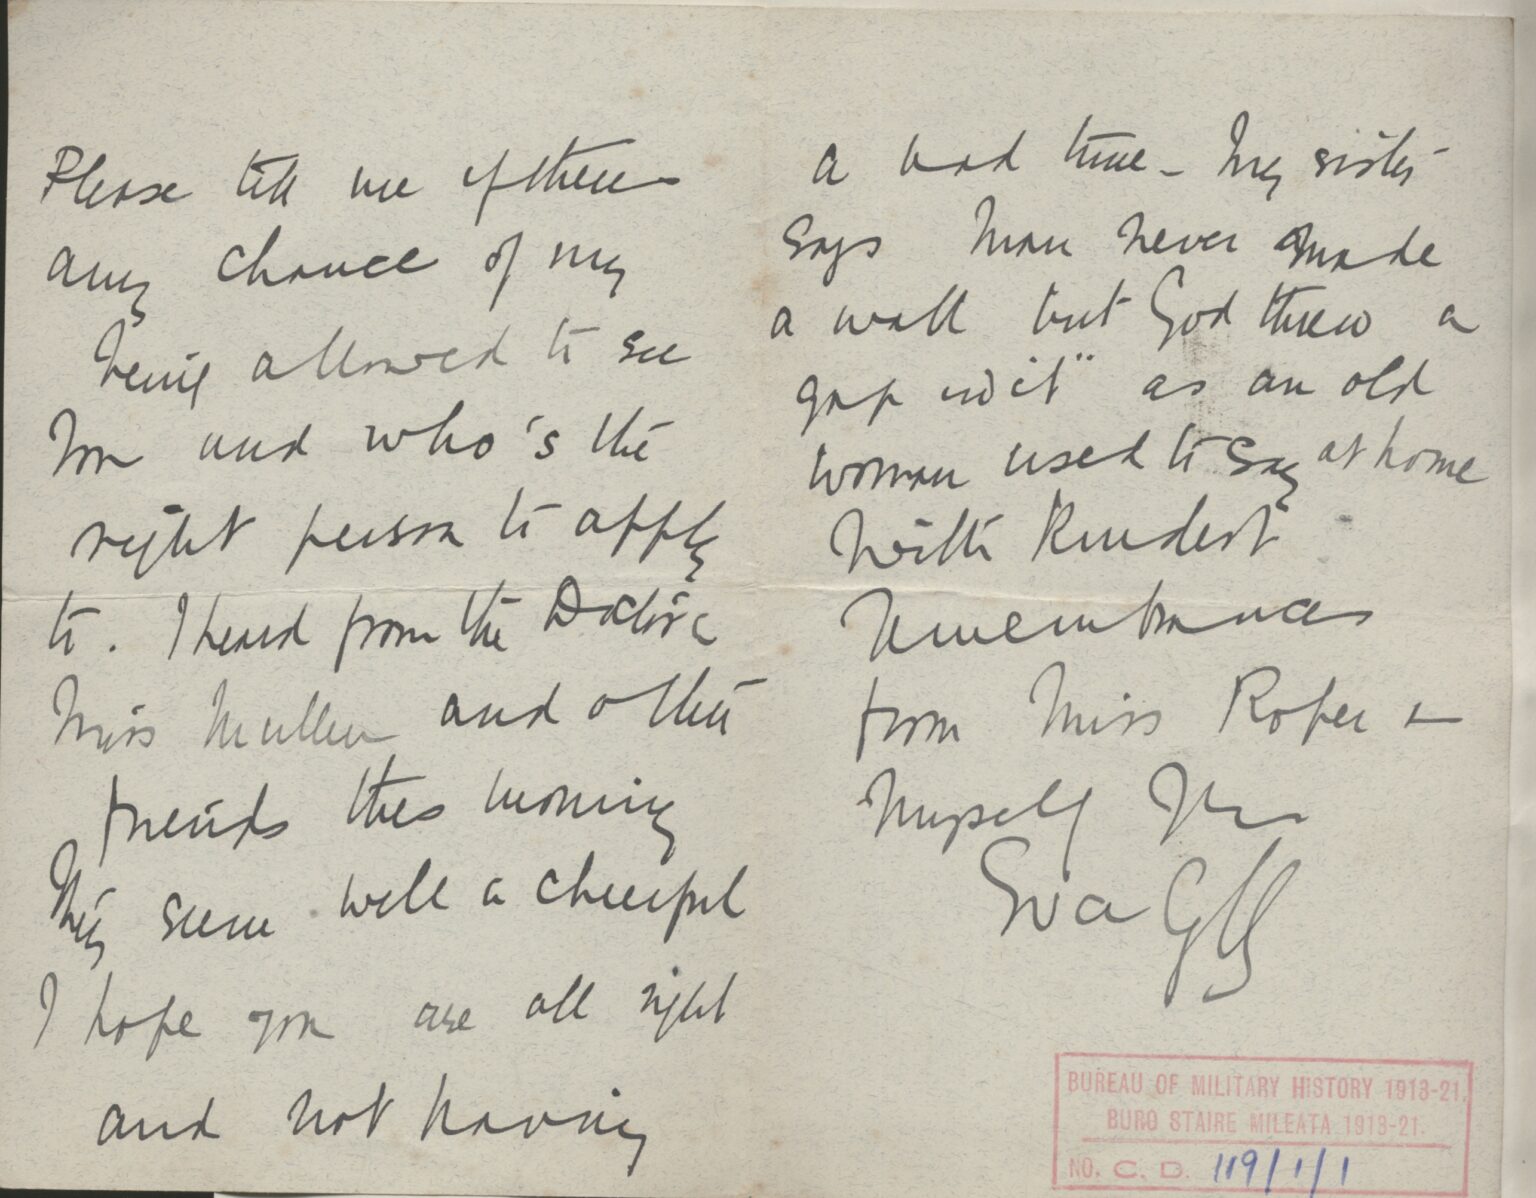 Please tell me if theres
any chance of my
being allowed to see
you and who's the
right person to apply
to. I heard from the Doctor
Miss Mullen and other
friends this morning
They seem well & cheerful
I hope you are all right
and not having
a bad time - My sister
says Man never made
a wall but God threw a
gap in it" as an old
woman used to say at home
With Kindest
remembrances
from Miss Roper &
Myself Yrs
Eva
BUREAU OF MILITARY HISTORY 1913-21.
BURO STAIRE MILEATA 1913-21.
NO. C. D. 119/1/1